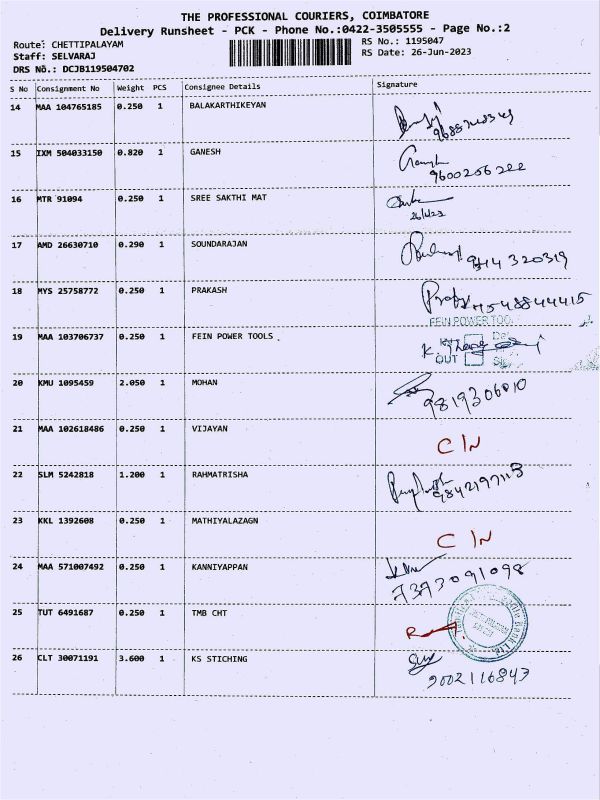 THE PROFESSIONAL COURIERS, COIMBATORE
Delivery Runsheet - PCK - Phone No.:0422-3505555 - Page No.:2
Route: CHETTIPALAYAM RS No.: 1195047
Staff: SELVARAJ RS Date: 26-Jun-2023
DRS No.: DCJB119504702
S No Consignment No Weight PCS Consignee Details Signature
14 MAA 104765185 0.250 1 BALAKARTHIKEYAN
15 IXM 504033150 0.820 1 GANESH
9600256222
16 MTR 91094 0.250 1 SREE SAKTHI MAT
17 AMD 26630710 0.290 1 SOUNDARAJAN
18 MYS 25758772 0.250 1 PRAKASH
FEIN POWER TOO
19 MAA 103706737 0.250 1 FEIN POWER TOOLS
OUT
20 KMU 1095459 2.050 1 MOHAN
9819306010
21 MAA 102618486 0.250 1 VIJAYAN
C IN
22 SLM 5242818 1.200 1 RAHMATRISHA
23 KKL 1392608 0.250 1 MATHIYALAZAGN
C IN
24 MAA 571007492 0.250 1 KANNIYAPPAN
7373091098
25 TUT 6491687 0.250 1 TMB CHT
26 CLT 30071191 3.600 1 KS STICHING
9002116843